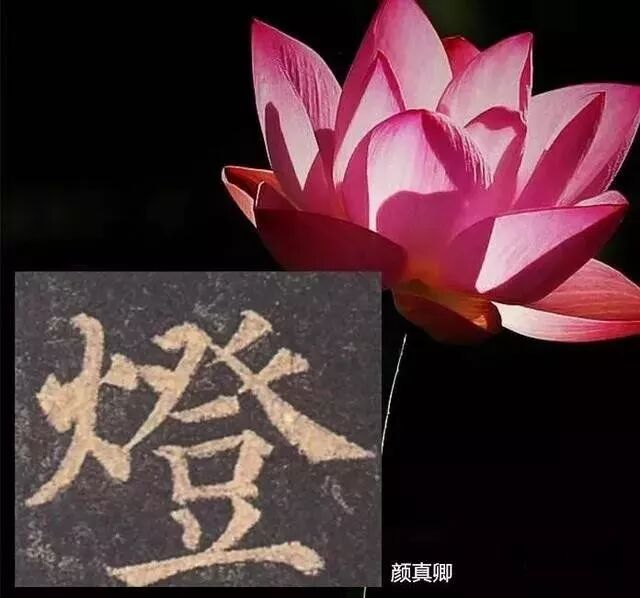 燈
颜真卿